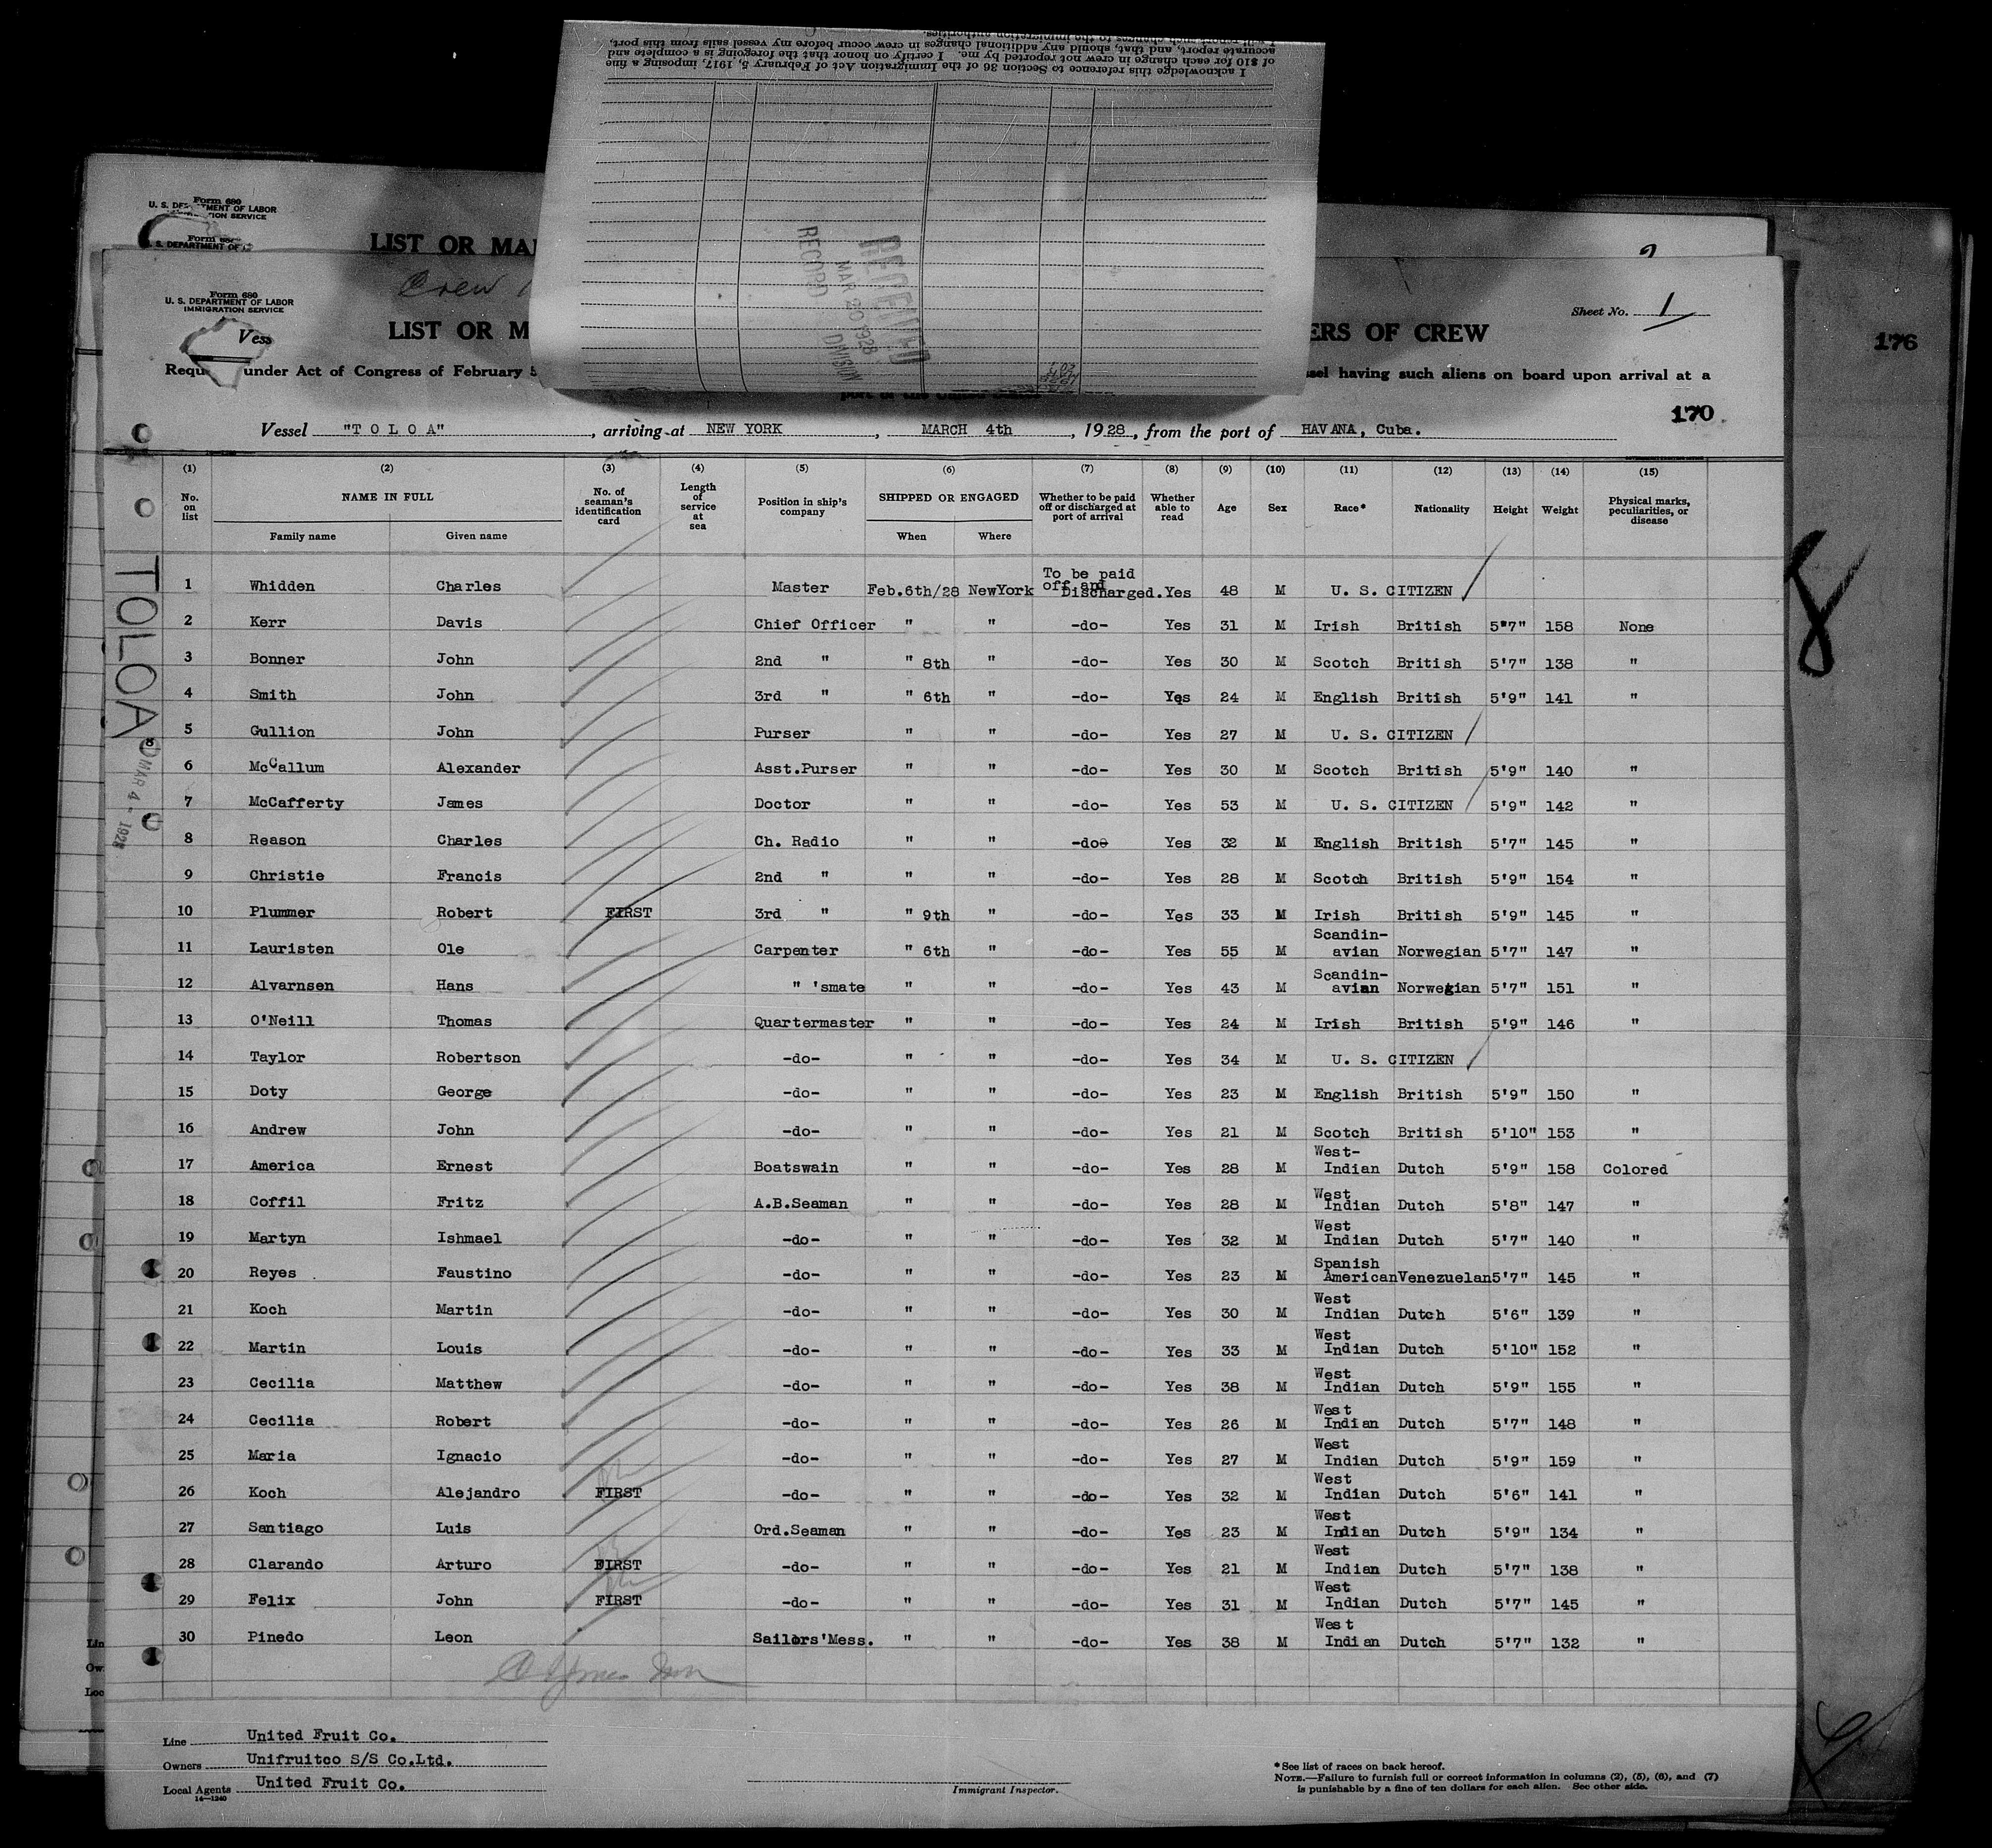 I acknowledge this reference to Section 36 of the Immigration Act of February 5, 1917, imposing a fine
of $10 for each change in crew not reported by me. I certify on honor that the foregoing is a complete and
accurate report, and that, should any additional changes in crew occur before my vessel sails from this port,
I will report such changes to the immigration authorities.
RECEIVED
MAR 20 1928
RECORD DIVISION
Form 680
U. S. DEPARTMENT OF LABOR
IMMIGRATION SERVICE
LIST OR MA
2
Form 680
U. S. DEPARTMENT OF
Crew
Form 680
U. S. DEPARTMENT OF LABOR
IMMIGRATION SERVICE
Sheet No. 1
Vess
LIST OR M ERS OF CREW
176
Requ under Act of Congress of February 5 ssel having such aliens on board upon arrival at a
port of the United States
170
Vessel "TOLOA", arriving at NEW YORK, MARCH 4th, 1928, from the port of HAVANA, Cuba.
(1) (2) (3) (4) (5) (6) (7) (8) (9) (10) (11) (12) (13) (14) (15)
No. on list NAME IN FULL Family name Given name No. of seaman's identification card Length of service at sea Position in ship's company SHIPPED OR ENGAGED When Where Whether to be paid off or discharged at port of arrival Whether able to read Age Sex Race* Nationality Height Weight Physical marks, peculiarities, or disease
1 Whidden Charles Master Feb.6th/28 NewYork To be paid off and Discharged. Yes 48 M U. S. CITIZEN
2 Kerr Davis Chief Officer " " -do- Yes 31 M Irish British 5"7" 158 None
3 Bonner John 2nd " " 8th " -do- Yes 30 M Scotch British 5'7" 138 "
4 Smith John 3rd " " 6th " -do- Yes 24 M English British 5'9" 141 "
5 Gullion John Purser " " -do- Yes 27 M U. S. CITIZEN
6 McCallum Alexander Asst.Purser " " -do- Yes 30 M Scotch British 5'9" 140 "
7 McCafferty James Doctor " " -do- Yes 53 M U. S. CITIZEN 5'9" 142 "
8 Reason Charles Ch. Radio " " -do- Yes 32 M English British 5'7" 145 "
9 Christie Francis 2nd " " " -do- Yes 28 M Scotch British 5'9" 154 "
10 Plummer Robert FIRST 3rd " " 9th " -do- Yes 33 M Irish British 5'9" 145 "
11 Lauristen Ole Carpenter " 6th " -do- Yes 55 M Scandin-avian Norwegian 5'7" 147 "
12 Alvarnsen Hans " 'smate " " -do- Yes 43 M Scandin-avian Norwegian 5'7" 151 "
13 O'Neill Thomas Quartermaster " " -do- Yes 24 M Irish British 5'9" 146 "
14 Taylor Robertson -do- " " -do- Yes 34 M U. S. CITIZEN
15 Doty George -do- " " -do- Yes 23 M English British 5'9" 150 "
16 Andrew John -do- " " -do- Yes 21 M Scotch British 5'10" 153 "
17 America Ernest Boatswain " " -do- Yes 28 M West-Indian Dutch 5'9" 158 Colored
18 Coffil Fritz A.B.Seaman " " -do- Yes 28 M West Indian Dutch 5'8" 147 "
19 Martyn Ishmael -do- " " -do- Yes 32 M West Indian Dutch 5'7" 140 "
20 Reyes Faustino -do- " " -do- Yes 23 M Spanish American Venezuelan 5'7" 145 "
21 Koch Martin -do- " " -do- Yes 30 M West Indian Dutch 5'6" 139 "
22 Martin Louis -do- " " -do- Yes 33 M West Indian Dutch 5'10" 152 "
23 Cecilia Matthew -do- " " -do- Yes 38 M West Indian Dutch 5'9" 155 "
24 Cecilia Robert -do- " " -do- Yes 26 M West Indian Dutch 5'7" 148 "
25 Maria Ignacio -do- " " -do- Yes 27 M West Indian Dutch 5'9" 159 "
26 Koch Alejandro FIRST -do- " " -do- Yes 32 M West Indian Dutch 5'6" 141 "
27 Santiago Luis Ord.Seaman " " -do- Yes 23 M West Indian Dutch 5'9" 134 "
28 Clarando Arturo FIRST -do- " " -do- Yes 21 M West Indian Dutch 5'7" 138 "
29 Felix John FIRST -do- " " -do- Yes 31 M West Indian Dutch 5'7" 145 "
30 Pinedo Leon Sailors'Mess. " " -do- Yes 38 M West Indian Dutch 5'7" 132 "
TOLOA
MAR 4 - 1928
8
Line United Fruit Co.
Owners Unifruitco S/S Co.Ltd.
Local Agents United Fruit Co.
14—1240
Immigrant Inspector.
*See list of races on back hereof.
NOTE.—Failure to furnish full or correct information in columns (2), (5), (6), and (7)
is punishable by a fine of ten dollars for each alien. See other side.